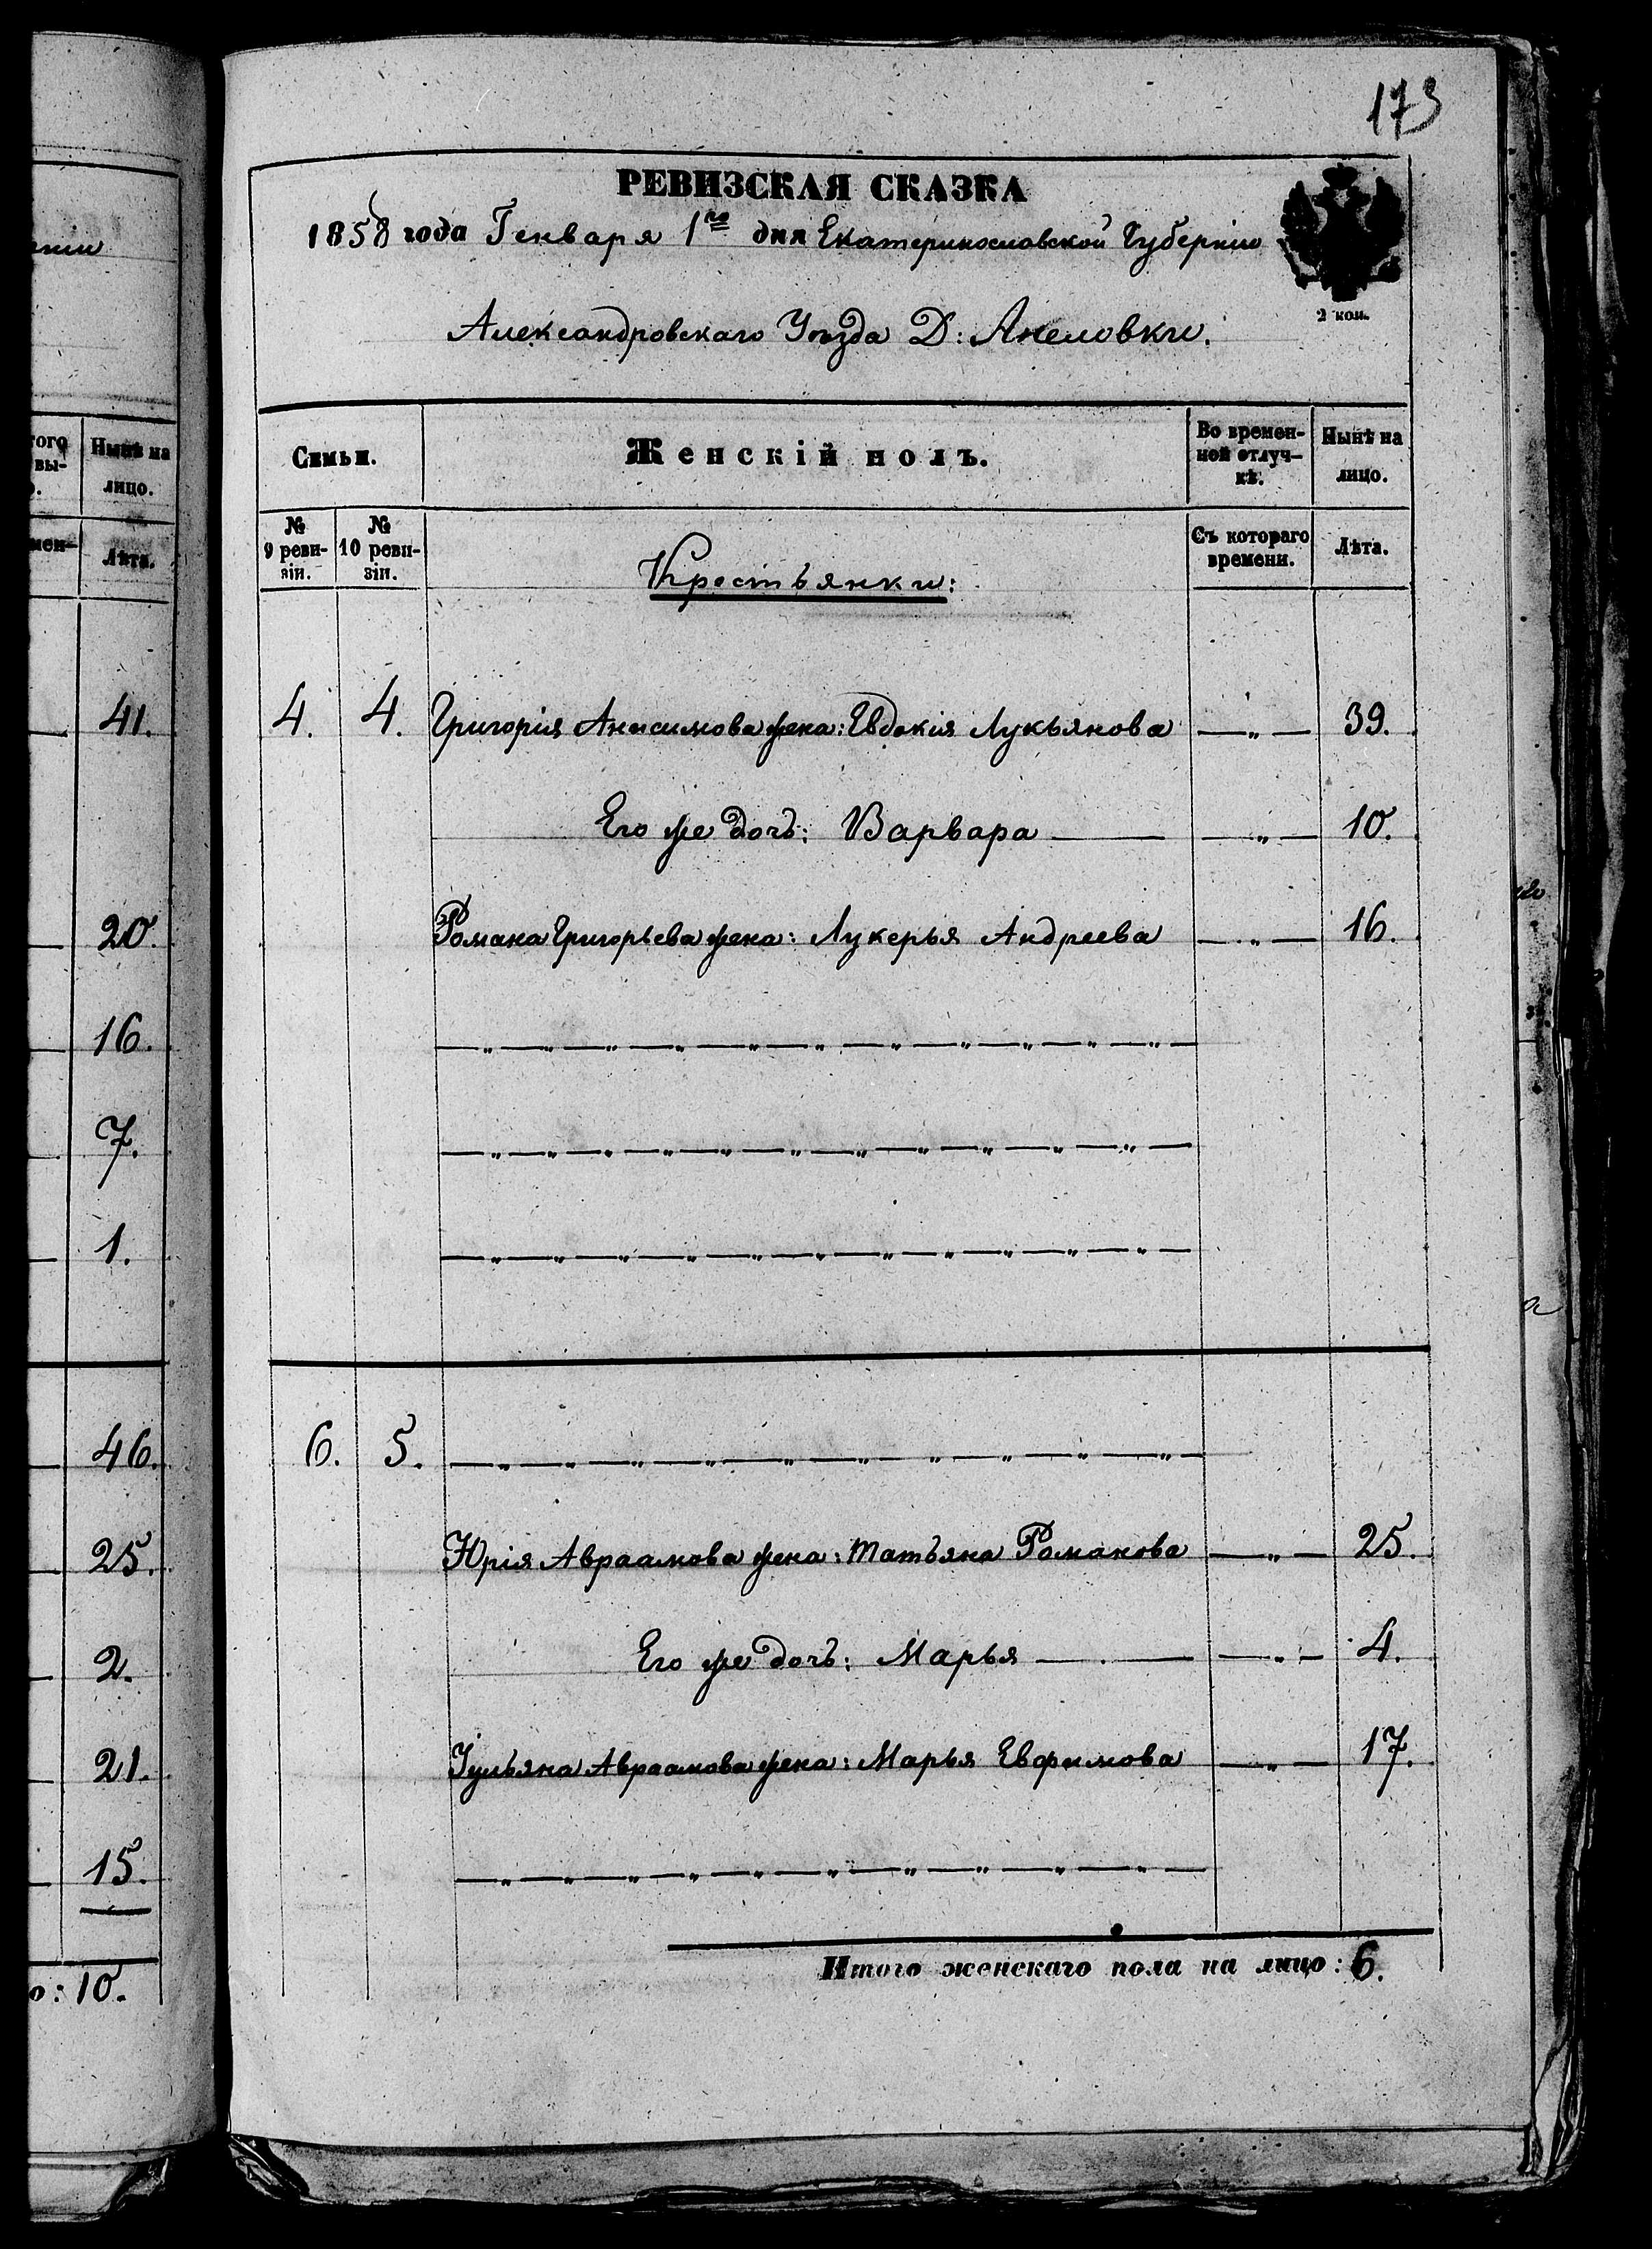 173
РЕВИЗСКАЯ СКАЗКА
1858 года Генваря 1го дня Екатеринославской Губерніи
2 коп.
Александровскаго Уѣзда Д: Анеловки.
Семьи.
Женскій полъ.
Во времен-
ной отлуч-
кѣ.
Нынѣ на
лицо.
№
9 реви-
зіи.
№
10 реви-
зіи.
Крестьянки:
Съ котораго
времени.
Лѣта.
4. 4. Григорія Анисимова жена: Евдокія Лукьянова — „ — 39.
Его же дочь: Варвара — — „ — 10.
Романа Григорьева жена: Лукерья Андреева — „ — 16.
6. 5. — „ — „ — „ — „ — „ — „ — „ — „ — „ — „ —
Юрія Авраамова жена: Татьяна Романова — „ — 25.
Его же дочь: Марья — — „ — 4.
Іульяна Авраамова жена: Марья Евфимова — „ — 17.
Итого женскаго пола на лицо: 6.
Нынѣ на
лицо.
Лѣта.
41.
20.
16.
7.
1.
46.
25.
2.
21.
15.
о: 10.